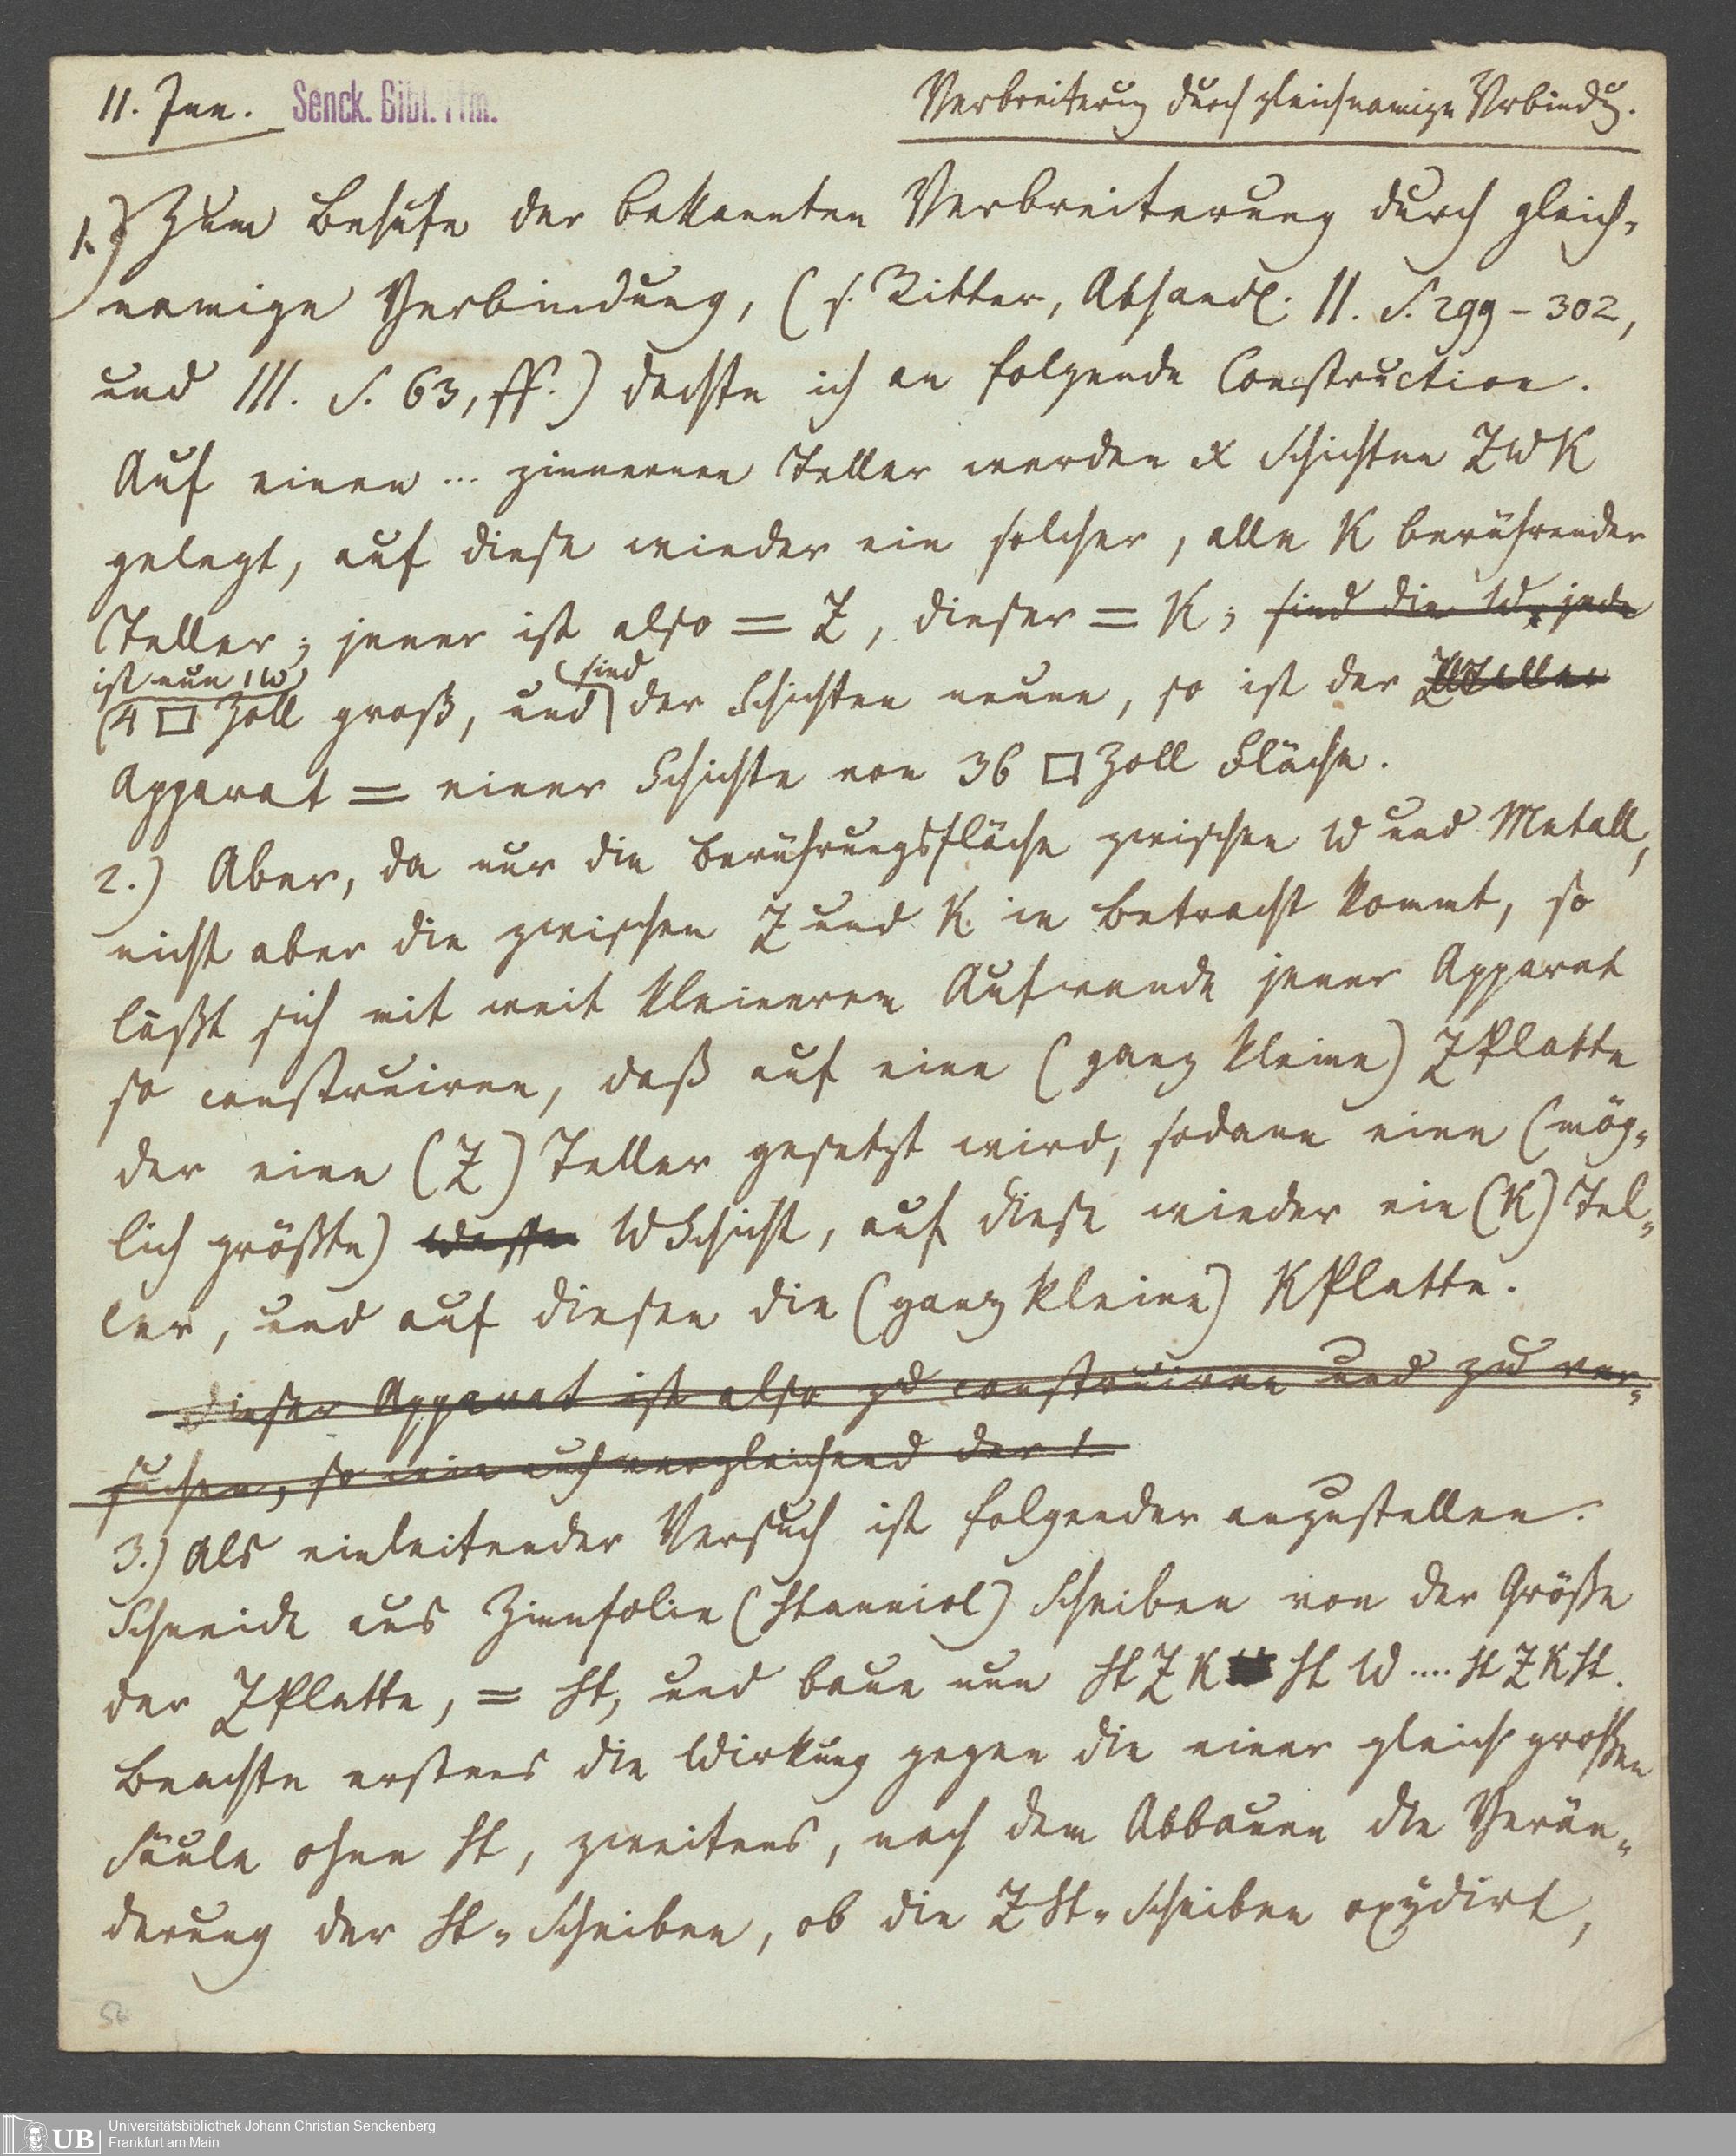 11. Jun. Senck. Bibl. Ffm. Verbreiterung durch gleichnamige Vrbindg.
1.) Zum Behufe der bekannten Verbreiterung durch gleich-
namige Verbindung, (s. Ritter, Abhandl. II. S. 299-302,
und III. S. 63, ff.) dachte ich an folgende Construction.
Auf einen ... zinnernen Teller werden x Schichten ZWK
gelegt, auf diese wieder ein solcher, alle K berührender
Teller; jener ist also = Z, dieser = K; sind die W, jede
ist nun 1 W sind
(4 □ Zoll groß, und der Schichten neune, so ist der
Apparat = einer Schichte von 36 □ Zoll Fläche.
2.) Aber, da nur die Berührungsfläche zwischen W und Metall,
nicht aber die zwischen Z und K in Betracht kommt, so
läßt sich mit weit kleinerem Aufwande jener Apparat
so construiren, daß auf eine (ganz kleine) ZPlatte
der eine (Z) Teller gesetzt wird, sodann eine (mög-
lich größte) WSchicht, auf diese wieder ein (K) Tel-
ler, und auf diesen die (ganz kleine) KPlatte.
Dieser Apparat ist also zu construiren und zu ver-
suchen, so wie auch vergleichend der 1.
3.) Als einleitender Versuch ist folgender anzustellen.
Schneide aus Zinnfolie (Stanniol) Scheiben von der Größe
der ZPlatte, = St, und baue nun St Z K St W .... St Z K St.
Beachte erstens die Wirkung gegen die einer gleich großen
Säule ohne St, zweitens, nach dem Abbauen die Verän-
derung der St-Scheiben, ob die ZSt-Scheiben oxydirt,
56
UB Universitätsbibliothek Johann Christian Senckenberg
Frankfurt am Main